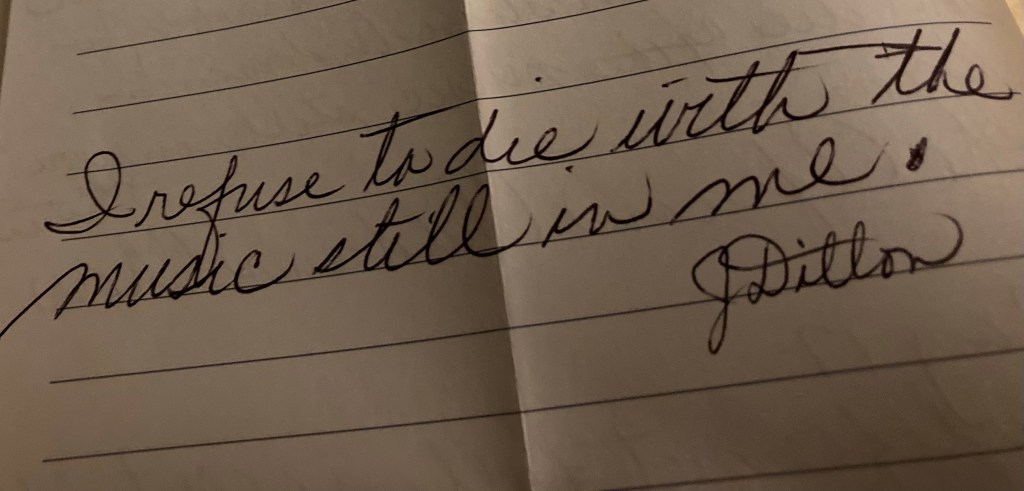 I refuse to die with the
music still in me.
J Ditton